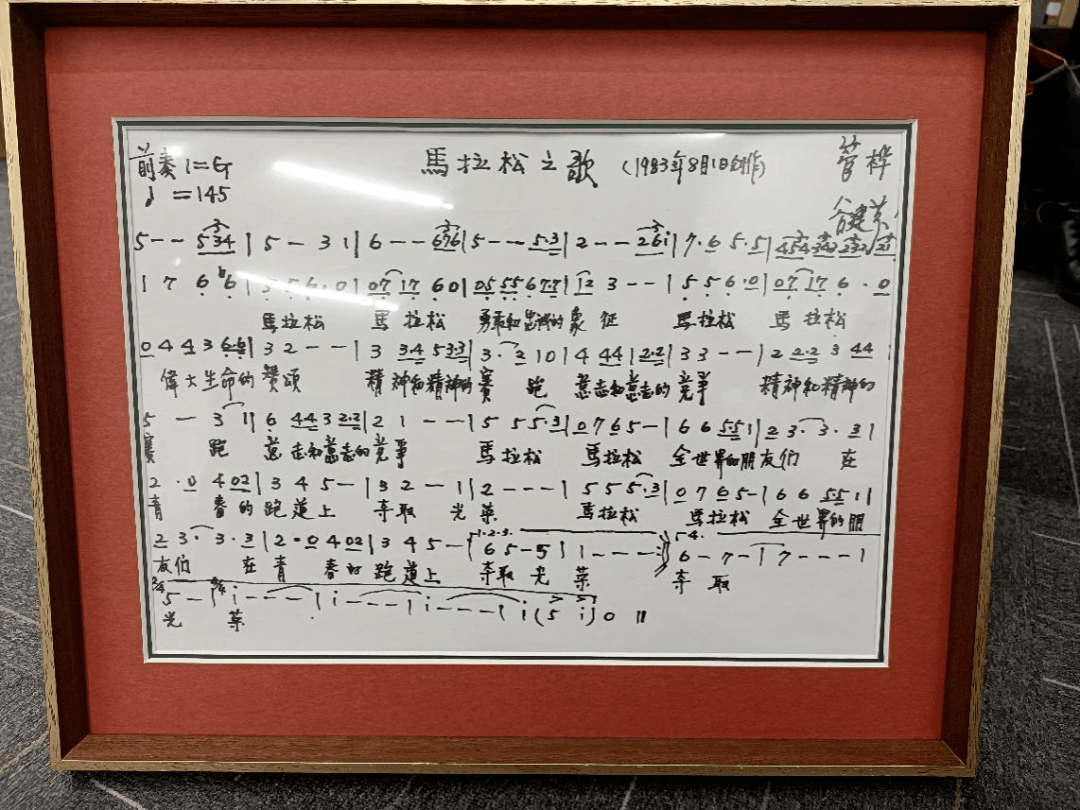 前奏 1=G 馬拉松之歌 (1983年8月1日創作) 管桦
♩=145 谷建芬
5 - - 5 3 4 | 5 - 3 1 | 6 - - 6 7 6 | 5 - - 5·3 | 2 - - 2 6 i | 7·6 5·5 | 4 5 4 3 4 3 2 3 2
1 7 6 ♭6 | 5 5 6·0 | 0 7 1 7 6 0 | 0 5 5 5 6 7·7 | 1 2 3 - - | 5 5 6·0 | 0 7 1 7 6·0
馬拉松 馬拉松 勇敢和 的象征 馬拉松 馬拉松
0 4 4 3 6·6 | 3 2 - - | 3 3·4 5 3·3 | 3·2 1 0 | 4 4 4 | 2·2 | 3 3 - - | 2 2·2 3 4 4 |
偉大生命的 贊頌 精神和精神的 賽跑 意志和意志的 竞争 精神和精神的
5 - 3 1 | 6 4 4 3 2·2 | 2 1 - - | 5 5 5·3 | 0 7 6 5 - | 6 6 5·5 1 | 2 3·3·3 |
賽跑 意志和意志的 竞争 馬拉松 馬拉松 全世界的朋友们 在
2·0 4 0 2 | 3 4 5 - | 3 2 - 1 | 2 - - - | 5 5 5·3 | 0 7 6 5 - | 6 6 5·5 1 |
青春的 跑道上 夺取 光荣 馬拉松 馬拉松 全世界的朋
2 3·3·3 | 2·0 4 0 2 | 3 4 5 - | 1.2.3. 6 5 - 5 | 1 - - - :‖ 4. 6 - 7 - | 7 - - - |
友们 在青 春的 跑道上 夺取光 荣 夺取
2/4 5 - | 4/4 i - - - | i - - - | i - - - | i (5 i) 0 ‖
光 荣